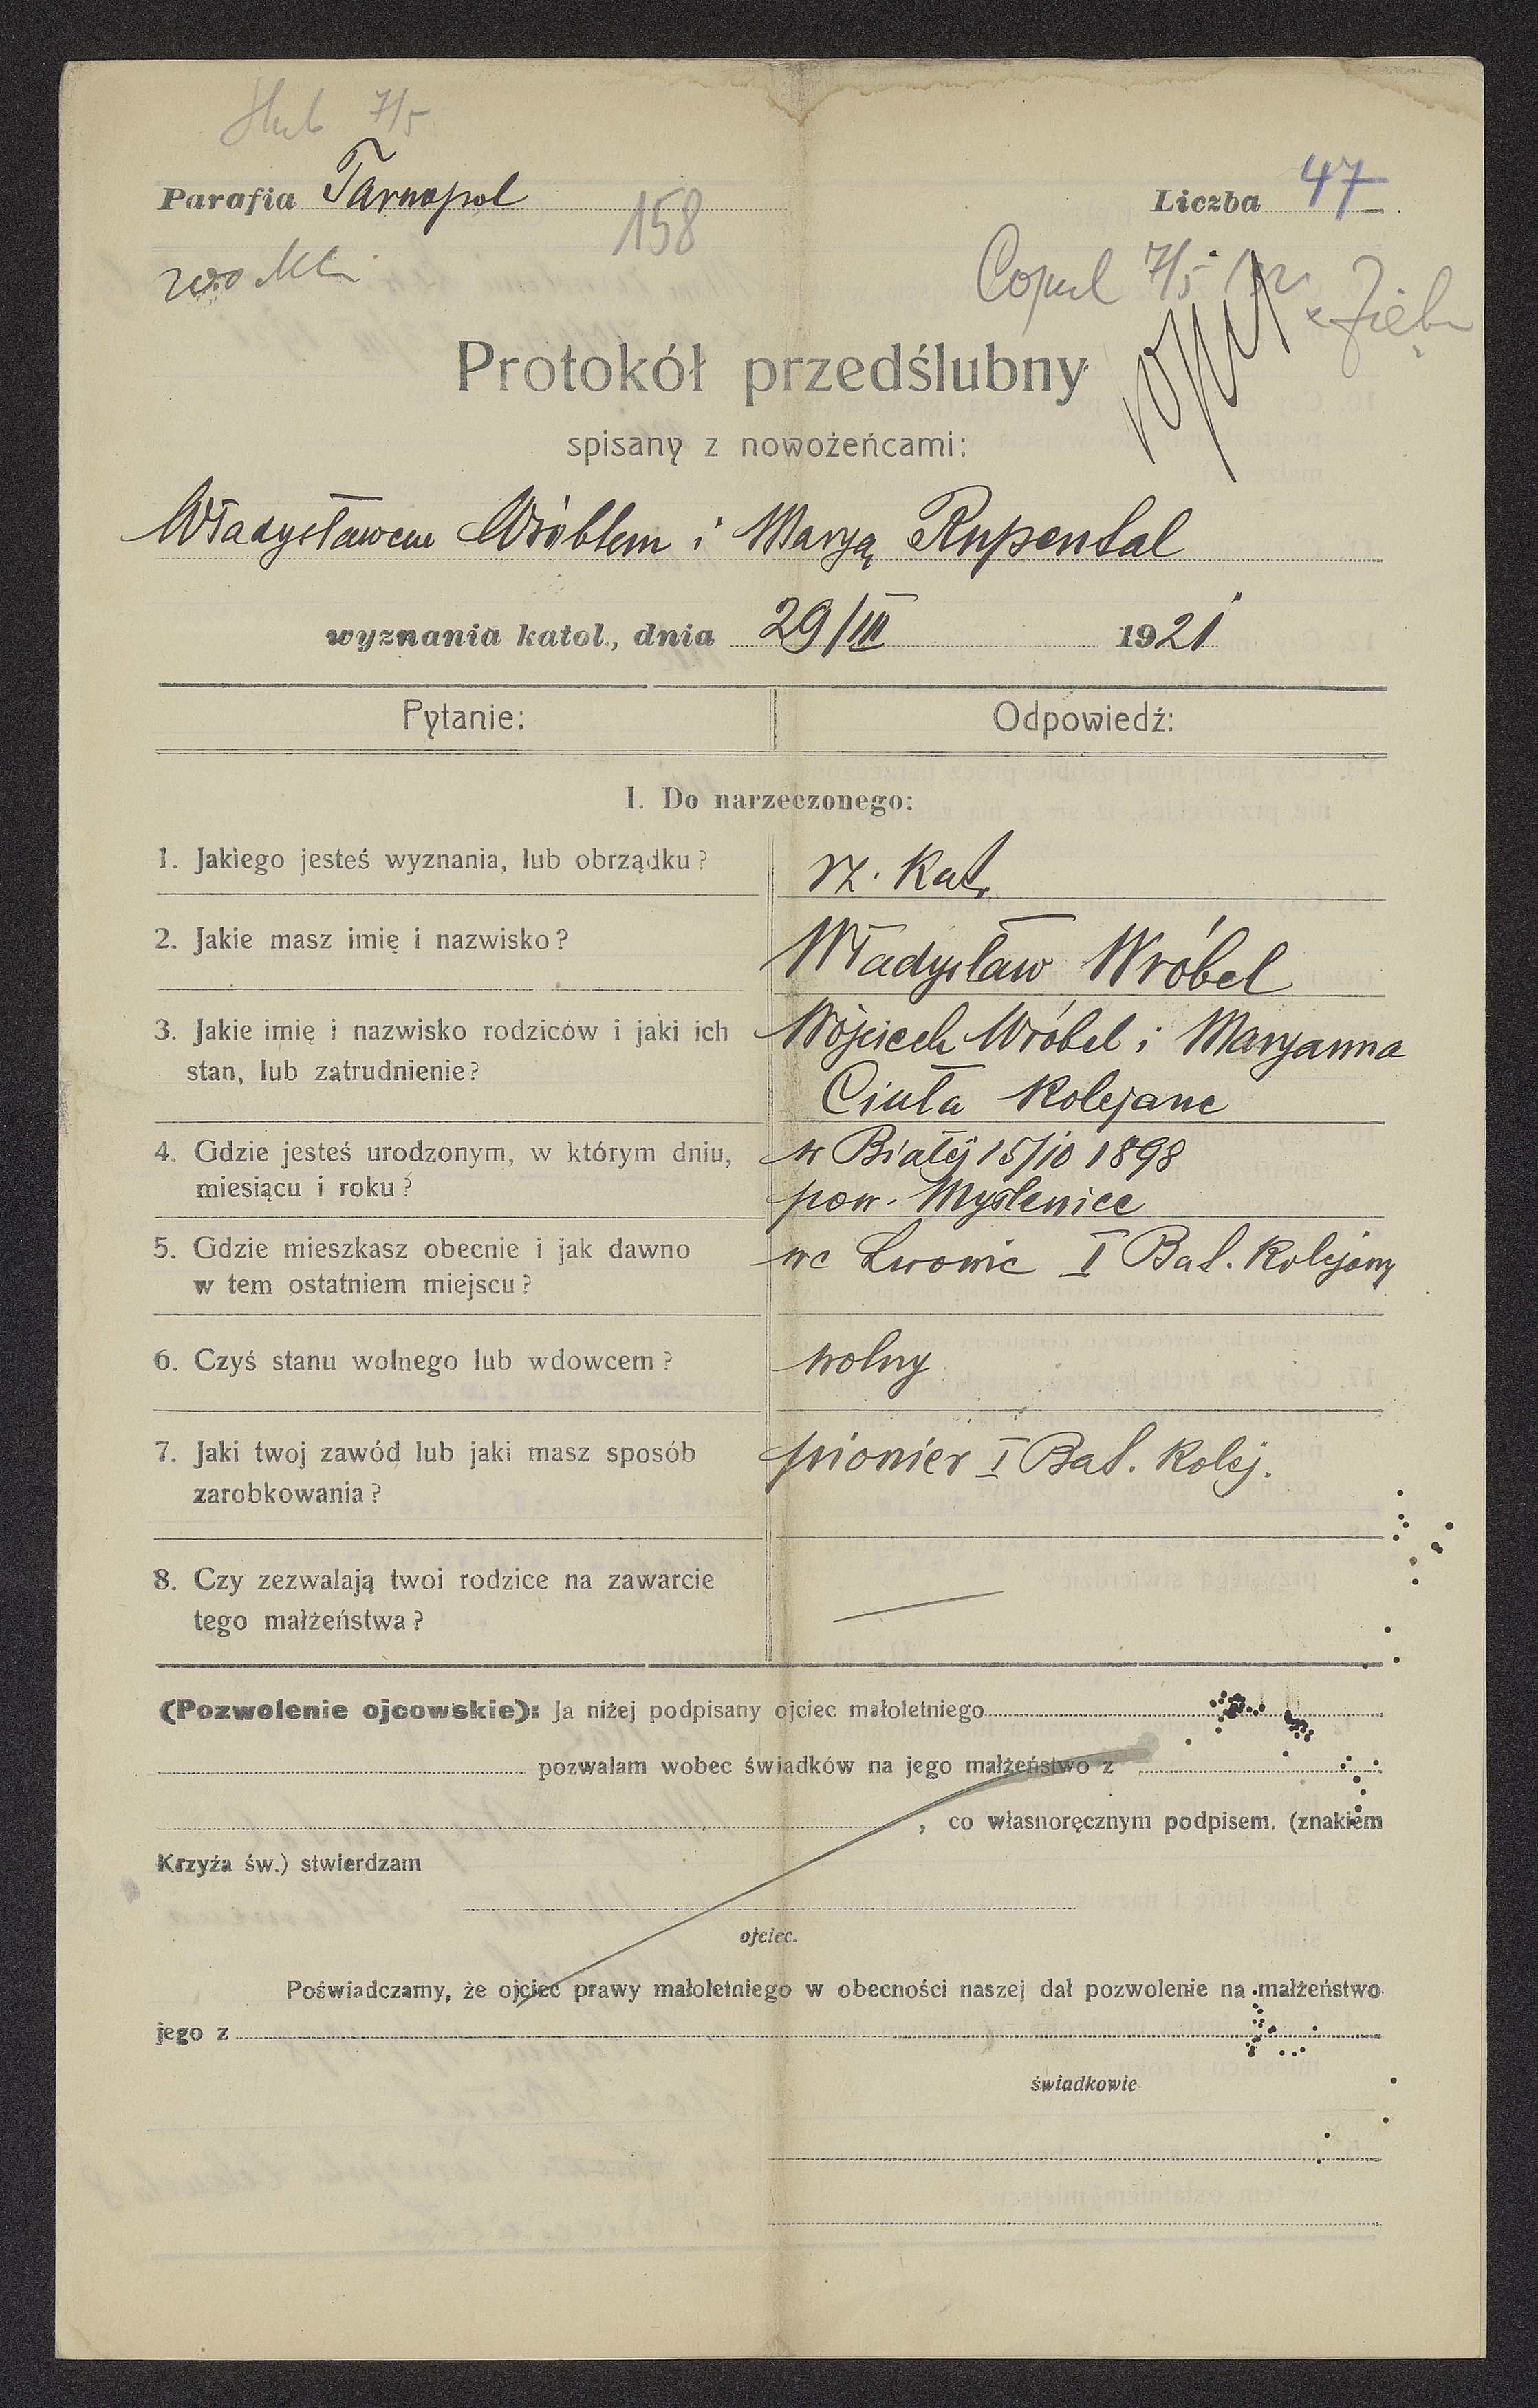 Ślub 7/5
Parafia Tarnopol
158
Liczba 47
Copul 7/5
Protokół przedślubny
spisany z nowożeńcami:
Władysławem Wróblem i Maryą Rupental
wyznania katol., dnia 29/III 1921
Pytanie: Odpowiedź:
I. Do narzeczonego:
1. Jakiego jesteś wyznania, lub obrządku? rz. kat.
2. Jakie masz imię i nazwisko? Władysław Wróbel
3. Jakie imię i nazwisko rodziców i jaki ich Wojciech Wróbel i Maryanna
stan, lub zatrudnienie? Ciuła Kolejane
4. Gdzie jesteś urodzonym, w którym dniu, w Białej 15/10 1898
miesiącu i roku? pow. Myślenice
5. Gdzie mieszkasz obecnie i jak dawno we Lwowie I Bat. Kolejowy
w tem ostatniem miejscu?
6. Czyś stanu wolnego lub wdowcem? wolny
7. Jaki twoj zawód lub jaki masz sposób pionier I Bat. Kolej.
zarobkowania?
8. Czy zezwalają twoi rodzice na zawarcie
tego małżeństwa? —
(Pozwolenie ojcowskie): Ja niżej podpisany ojciec małoletniego
pozwalam wobec świadków na jego małżeństwo z
, co własnoręcznym podpisem. (znakiem
Krzyża św.) stwierdzam
ojciec.
Poświadczamy, że ojciec prawy małoletniego w obecności naszej dał pozwolenie na małżeństwo
jego z
świadkowie